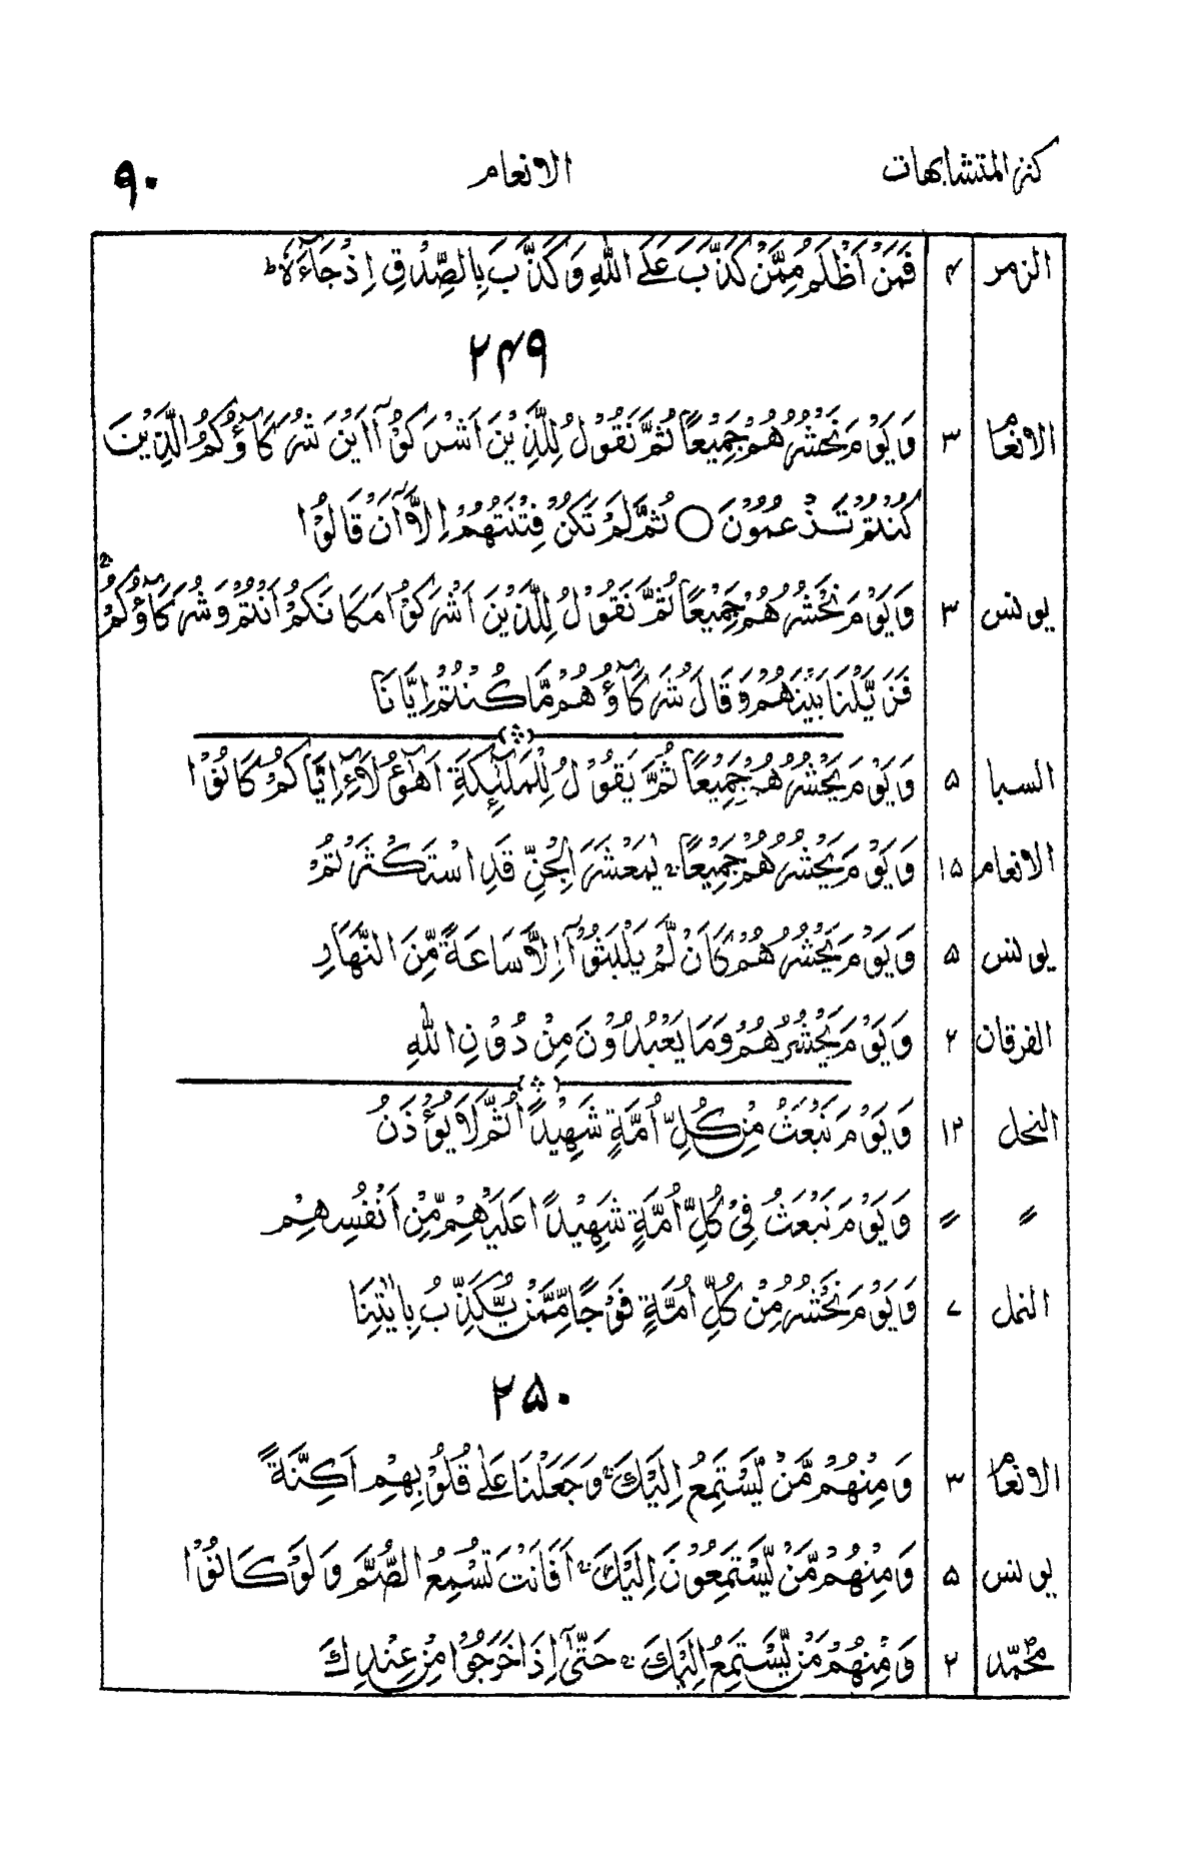 كنز المتشابهات الانعام ٩٠
الزمر ۴ فَمَنْ اَظْلَمُ مِمَّنْ كَذَبَ عَلَى اللّٰهِ وَكَذَّبَ بِالصِّدْقِ اِذْ جَآءَهٗ ؕ
۲۴۹
الانعام ۳ وَيَوْمَ نَحْشُرُهُمْ جَمِيْعًا ثُمَّ نَقُوْلُ لِلَّذِيْنَ اَشْرَكُوْۤا اَيْنَ شُرَكَآؤُكُمُ الَّذِيْنَ
كُنْتُمْ تَزْعُمُوْنَ ○ ثُمَّ لَمْ تَكُنْ فِتْنَتُهُمْ اِلَّاۤ اَنْ قَالُوْا
يونس ۳ وَيَوْمَ نَحْشُرُهُمْ جَمِيْعًا ثُمَّ نَقُوْلُ لِلَّذِيْنَ اَشْرَكُوْا مَكَانَكُمْ اَنْتُمْ وَشُرَكَآؤُكُمْ ۚ
فَزَيَّلْنَا بَيْنَهُمْ وَقَالَ شُرَكَآؤُهُمْ مَّا كُنْتُمْ اِيَّانَا
السبا ۵ وَيَوْمَ يَحْشُرُهُمْ جَمِيْعًا ثُمَّ يَقُوْلُ لِلْمَلٰٓئِكَةِ اَهٰٓؤُلَآءِ اِيَّاكُمْ كَانُوْا
الانعام ۱۵ وَيَوْمَ يَحْشُرُهُمْ جَمِيْعًا ۚ يٰمَعْشَرَ الْجِنِّ قَدِ اسْتَكْثَرْتُمْ
يونس ۵ وَيَوْمَ يَحْشُرُهُمْ كَاَنْ لَّمْ يَلْبَثُوْۤا اِلَّا سَاعَةً مِّنَ النَّهَارِ
الفرقان ۲ وَيَوْمَ يَحْشُرُهُمْ وَمَا يَعْبُدُوْنَ مِنْ دُوْنِ اللّٰهِ
النحل ۱۲ وَيَوْمَ نَبْعَثُ مِنْ كُلِّ اُمَّةٍ شَهِيْدًا ثُمَّ لَا يُؤْذَنُ
〃 〃 وَيَوْمَ نَبْعَثُ فِيْ كُلِّ اُمَّةٍ شَهِيْدًا عَلَيْهِمْ مِّنْ اَنْفُسِهِمْ
النمل ۷ وَيَوْمَ نَحْشُرُ مِنْ كُلِّ اُمَّةٍ فَوْجًا مِّمَّنْ يُّكَذِّبُ بِاٰيٰتِنَا
۲۵۰
الانعام ۳ وَمِنْهُمْ مَّنْ يَّسْتَمِعُ اِلَيْكَ ۚ وَجَعَلْنَا عَلٰى قُلُوْبِهِمْ اَكِنَّةً
يونس ۵ وَمِنْهُمْ مَّنْ يَّسْتَمِعُوْنَ اِلَيْكَ ۚ اَفَاَنْتَ تُسْمِعُ الصُّمَّ وَلَوْ كَانُوْا
محمّد ۲ وَمِنْهُمْ مَّنْ يَّسْتَمِعُ اِلَيْكَ ۚ حَتّٰىۤ اِذَا خَرَجُوْا مِنْ عِنْدِكَ